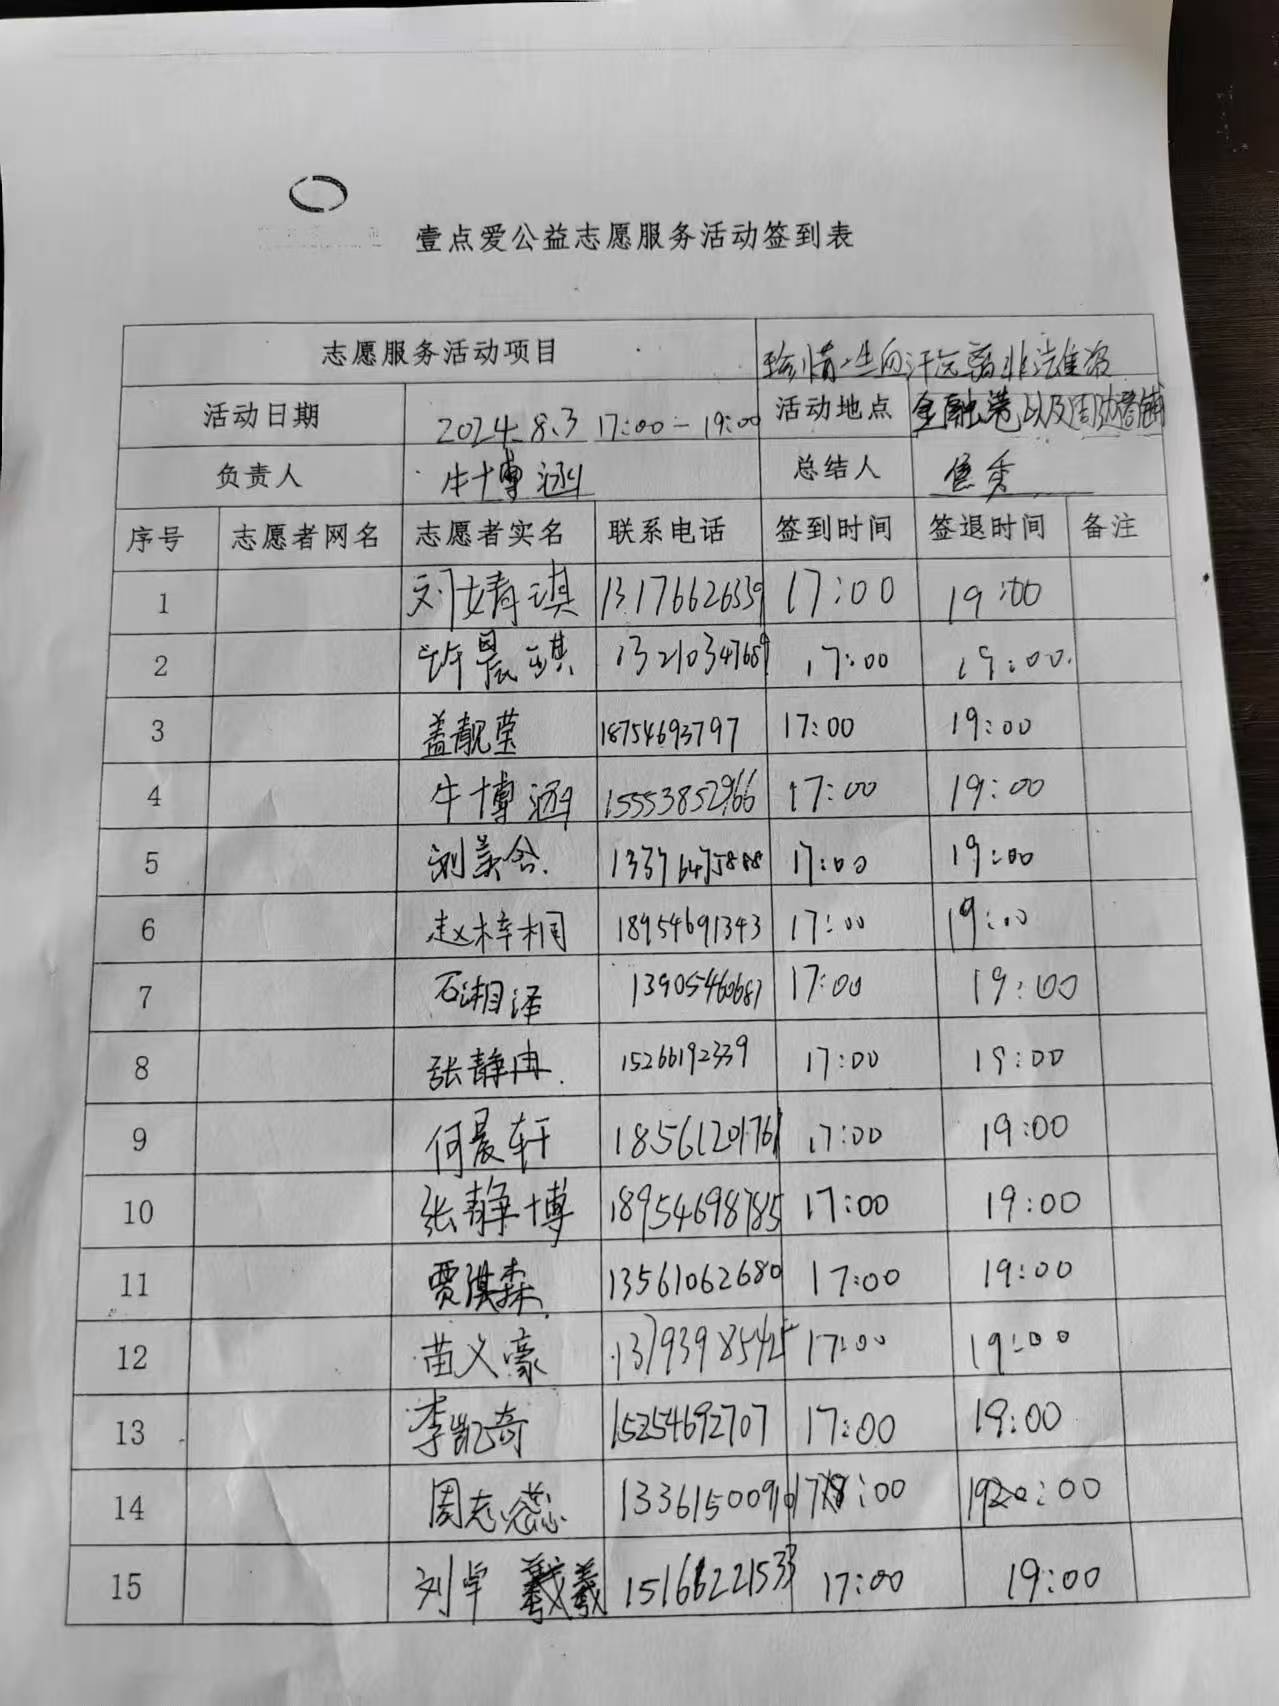 壹点爱公益志愿服务活动签到表
志愿服务活动项目
活动日期 2024.8.3 17:00-19:00 活动地点 金融港以及周边商铺
负责人 牛博涵 总结人 秀
序号 志愿者网名 志愿者实名 联系电话 签到时间 签退时间 备注
1 刘婧琪 13176626339 17:00 19:00
2 许晨琪 13210347689 17:00 19:00
3 盖靓莹 18754693797 17:00 19:00
4 牛博涵 15553852966 17:00 19:00
5 刘美含 13376475888 17:00 19:00
6 赵梓桐 18954691343 17:00 19:00
7 石湘泽 13905460687 17:00 19:00
8 张静冉 15266192339 17:00 19:00
9 何晨轩 18561201761 17:00 19:00
10 张静博 18954698785 17:00 19:00
11 贾淇森 13561062680 17:00 19:00
12 苗义豪 13793985425 17:00 19:00
13 李凯奇 15254692707 17:00 19:00
14 周志蕊 13361500910 17:00 19:00
15 刘卓羲 15166221533 17:00 19:00